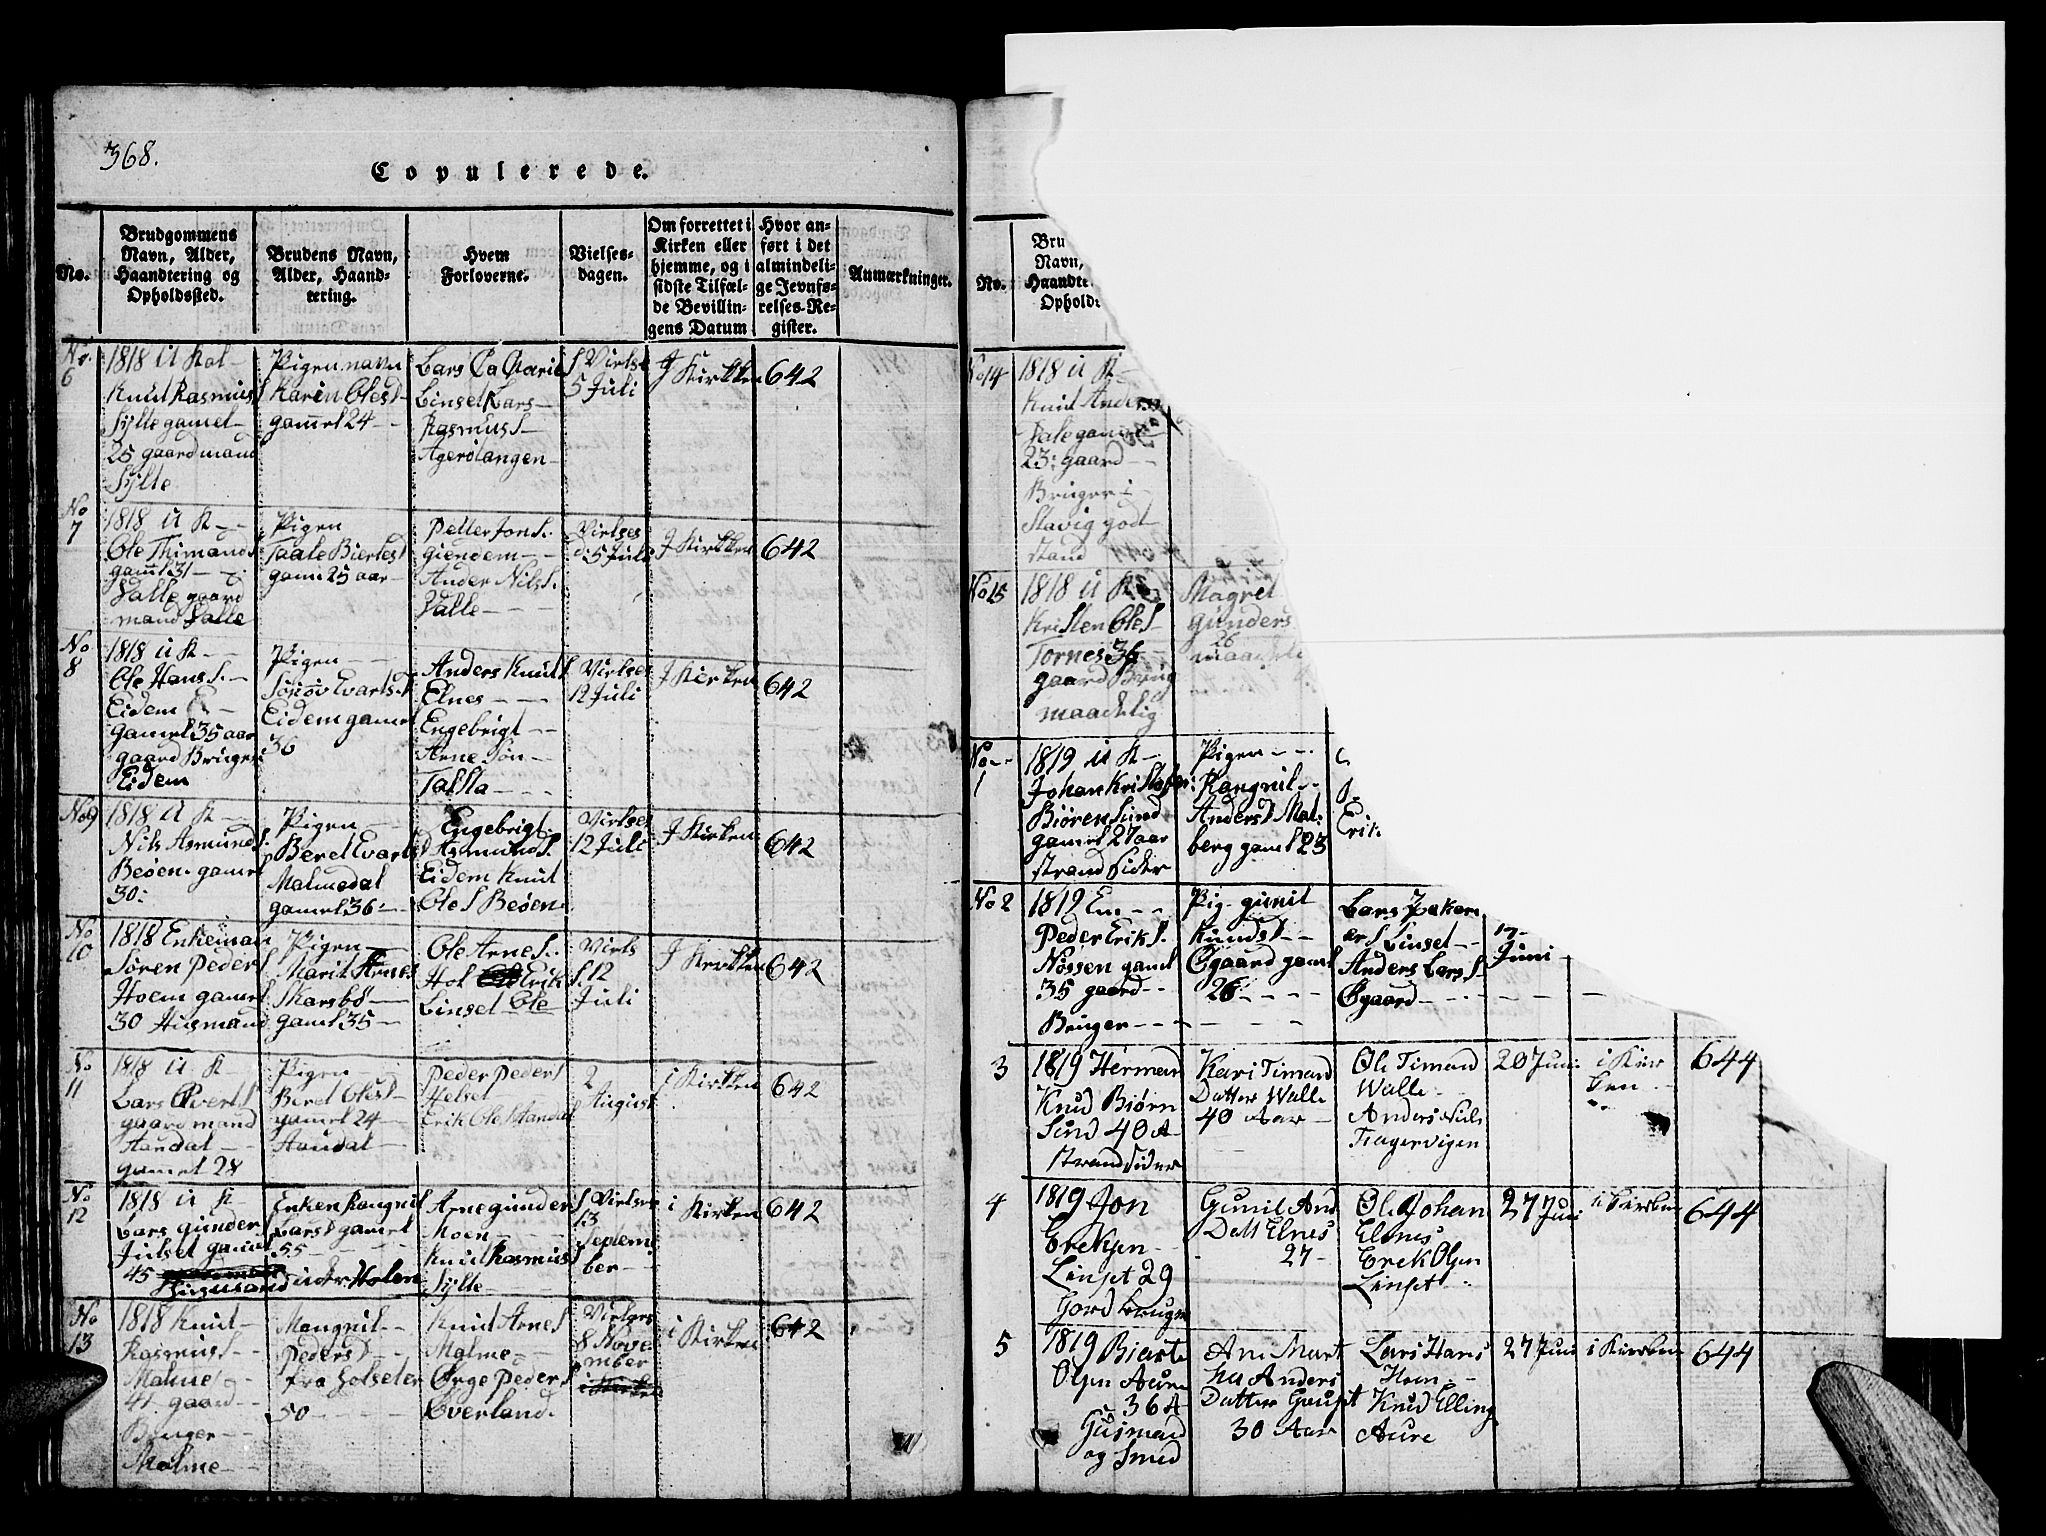 368.
Copulerede.
No.
Brudgommens
Navn, Alder,
Haandtering og
Opholdssted.
Brudens Navn,
Alder, Haand-
tering.
Hvem
Forloverne.
Vielses-
dagen.
Om forrettet i
Kirken eller
hjemme, og i
sidste Tilfæl-
de Bevillin-
gens Datum
Hvor an-
ført i det
almindeli-
ge Jevnfø-
relses-Re-
gister.
Anmærkninger.
No.
6
1818 U Kal-
Knud Rasmus S
Sylte gamel
25 gaard mand
Sylte
Pigen navn
Karen Oles D
gamel 24
Lars
Linset Lars
Rasmus S
Agerølangen
Virlse
5 Juli
J Kirkken
642
No
7
1818 U K
Ole Thimands
gaml 31
Valle gaard
mand Valle
Pigen
gaml 25 aar
Petter Jon S.
giendem
Ander Nils S.
Valle
Virlses
d: 5 Juli
J Kirkken
642
No
8
1818 U K
Ole Hans S.
Eidem
gamel 35 aar
gaard Bruger
Eidem
Pigen
Eidem gamel
36
Anders Knut S
Elnes
Engebrigt
Arne Søn
Talsta
Virlses
12 Juli
J Kirken
642
No 9
1818 U K
Nils Asmund S.
Beøen gamel
30:
Pigen
Beret Evarts D
Malmedal
gamel 36:
Engebrigt
Asmund S.
Eidem Knut
Ole S Beøen
Virlses
12 Juli
J Kirken
642
No
10
1818 Enkeman
Søren Peder S
Hoem gamel
30 Husmand
Pigen
Marit Arnes
Skarsbø
gaml 35
Ole Arne S.
Hol Erik
Linset Ole
Virls
S. 12
Juli
J Kirkken
642
No
11
1818 U K
Lars Overt S
gaard mand
Haudal
gamel 28
Pigen
Beret Oles D
gamel 24
Haudal
Peder Peder S
Helset
Erik Ole S Haudal
2
August
i Kirkken
642
No
12
1818 U K
Lars gunder
Julset gamel
45
Husmand
Enken Rangnil
Lars D gamel
55
under Holen
Arne gunder S
Moen
Knud Rasmus S
Sylte
Virlser
13
Septem
ber
i Kirken
642
No
13
1818 Knut
Rasmus S
Malme
41 gaard
Bruger
Malme
Mangnil
Peders D
fra Holseter
50
Knud Arne S
Malme
Ørge Peder S
Overland.
Virlses
8 Nove
mber
i Kirken
642
No.
Bru
Navn,
Haandte
Opholds
No 14
1818 U K
Knud Anders
Dale gamel
23: gaard
Bruger i
Slavig god
stand
No 15
1818 U K
Kristen Ole S
Tornes 36
gaard Brug
maadelig
Magret
gunders
26
maadeli
No
1
1819 U K
Johan Kristofer:
Biøren Sund
gamel 27 aar
strand sider
Pigen
Rangnil
Anders D Mal:
berg gaml 23
Erik
No 2
1819 Em
Peder Erik S.
Nøssen gaml
35 gaard
Bruger
Pig. gunil
Kunds D
Øgaard gaml
26
Lars
er S Linset
Anders Lars S.
Øgaard
Juni
3
1819 Herman
Knud Biørn
Sund 40 A
Strandsider
Kari Timand
Datter Walle
40 Aar
Ole Timand
Walle
Anders Niels
Tragervigen
20 Juni
i Kir
ken
644
4
1819 Jon
Ereksen
Linset 29
Gord bruger
Gunil And
Datt Elnes
27
Ole Johan
Elnes
Erek Olsen
Linset
27 Juni
i Kirken
644
5
1819 Biarte
Olsen Aure
36 A
Gusmand
og Smed
Ane Mart
ha Anders
Datter Gaupst
30 Aar
Lars Hans
Hoem
Knud Elling
Aure
27 Juni
i Kirken
644